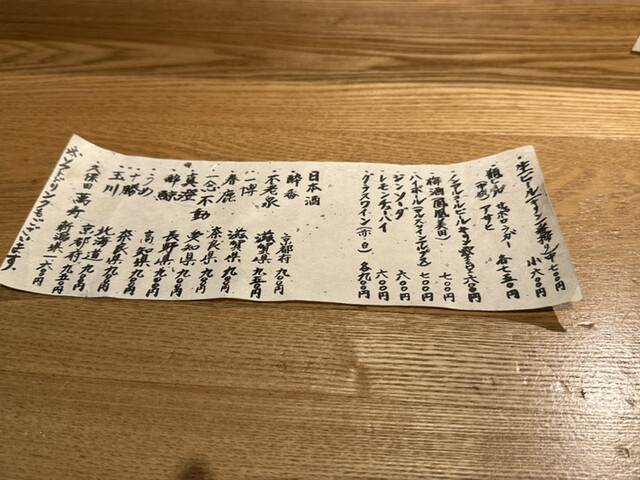 ・生ビール(キリン一番搾り)中七〇〇円
小六〇〇円
・瓶ビール サッポロラガー
(中瓶) アサヒ 各七五〇円
・ノンアルコールビール(キリン零ICHI)六〇〇円
・梅酒(鳳凰美田) 七〇〇円
・ハイボール 七〇〇円
・レモンチューハイ 六〇〇円
・ジンソーダ 六〇〇円
・グラスワイン(赤・白) 各九〇〇円
日本酒
酔香 京都府 九〇〇円
不老泉 滋賀県 九五〇円
一博 滋賀県 九〇〇円
春鹿 奈良県 九〇〇円
一念不動 愛知県 九〇〇円
真澄 長野県 九〇〇円
酔鯨 高知県 九〇〇円
うめ 奈良県
十勝 北海道 九〇〇円
玉川 京都府 九五〇円
久保田萬寿 新潟県 一六〇〇円
※ソフトドリンクもございます。